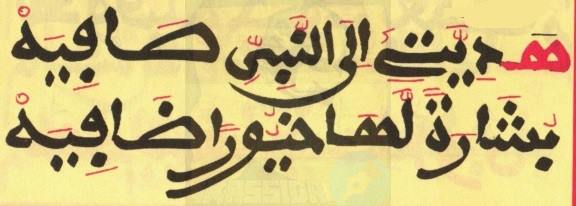 هَدِيَّتِي إِلَى النَّبِيِّ صَافِيَهْ
بِشَارَةً لَهَا خُيُورًا ضَافِيَهْ